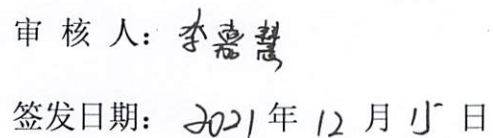 审核人：李嘉慧
签发日期：2021年12月15日